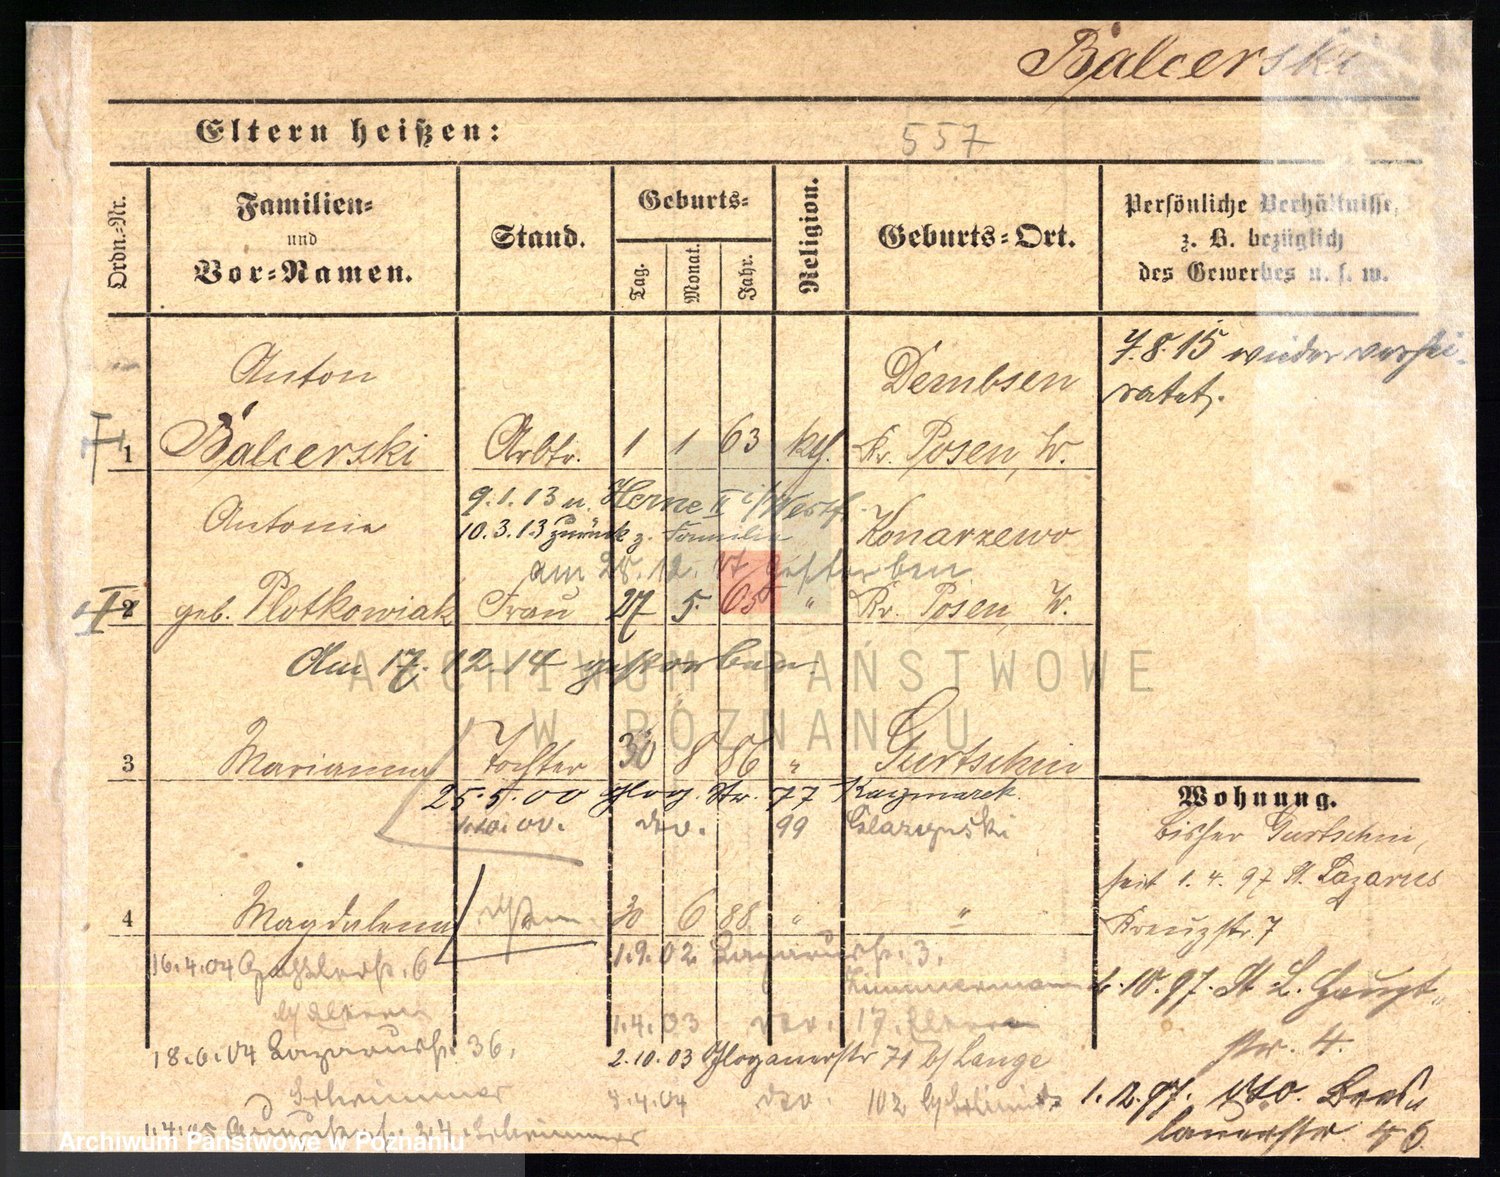 Balcerski
Eltern heißen:
557
Ordn.-Nr.
Familien-
und
Vor-Namen.
Stand.
Geburts-
Tag.
Monat.
Jahr.
Religion.
Geburts-Ort.
Persönliche Verhältnisse,
z. B. bezüglich
des Gewerbes u. s. w.
7.8.15 wieder verhei-
ratet.
Anton
Dembsen
1 Balcerski Arbtr. 1 1 63 kth. Kr. Posen, W.
9.1.13 n. Herne II i/Westf.
Antonie
10.3.13 zurück z. Familie
Konarzewo
am 25.12.17 gestorben
2 geb. Plotkowiak Frau 27 5. 65 " Kr. Posen, W.
Am 17.12.14 gestorben.
ARCHIWUM PAŃSTWOWE
W POZNANIU
3 Marianna Tochter 30 8 86 " Gurtschin
25.5.00 Glog. Str. 77 Kaczmarek.
1.10.00. do. 99
Wohnung.
bisher Gurtschin,
seit 1.4.97 St. Lazarus
Kreuzstr. 7
4 Magdalena 30 6 88 " "
1.9.02 Lazarusstr. 3.
Zimmermann
16.4.04 6
b/ Eltern
1.4.03 do. 17. Eltern
1.10.97. St. L. Haupt-
str. 4.
18.6.04 Lazarusstr. 36.
2.10.03 Glogauerstr 71 b/ Lange
Schrimmer
4.04 do. 102
1.12.97. do. Bres-
lauerstr.
1.4.05 24 Schrimmer
Archiwum Państwowe w Poznaniu